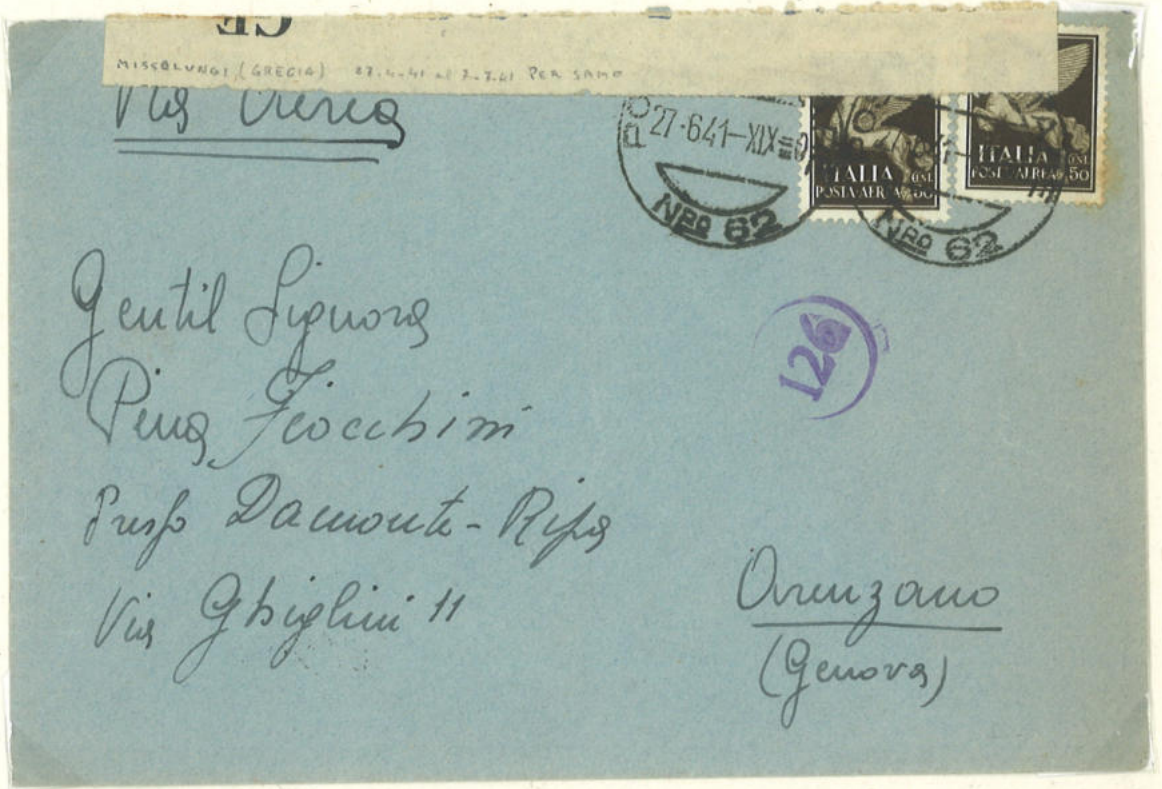 CE
MISSOLUNGI (GRECIA) 27.4.41 al 7.7.41 PER SAMO
Via Aerea
27·6 41-XIX
Nro 62
Nro 62
ITALIA
POSTA AEREA 50
ITALIA
POSTA AEREA 50
126
Gentil Signora
Pina Fiocchini
Presso Damonte-Ripa
Via Ghiglini 11
Arenzano
(Genova)